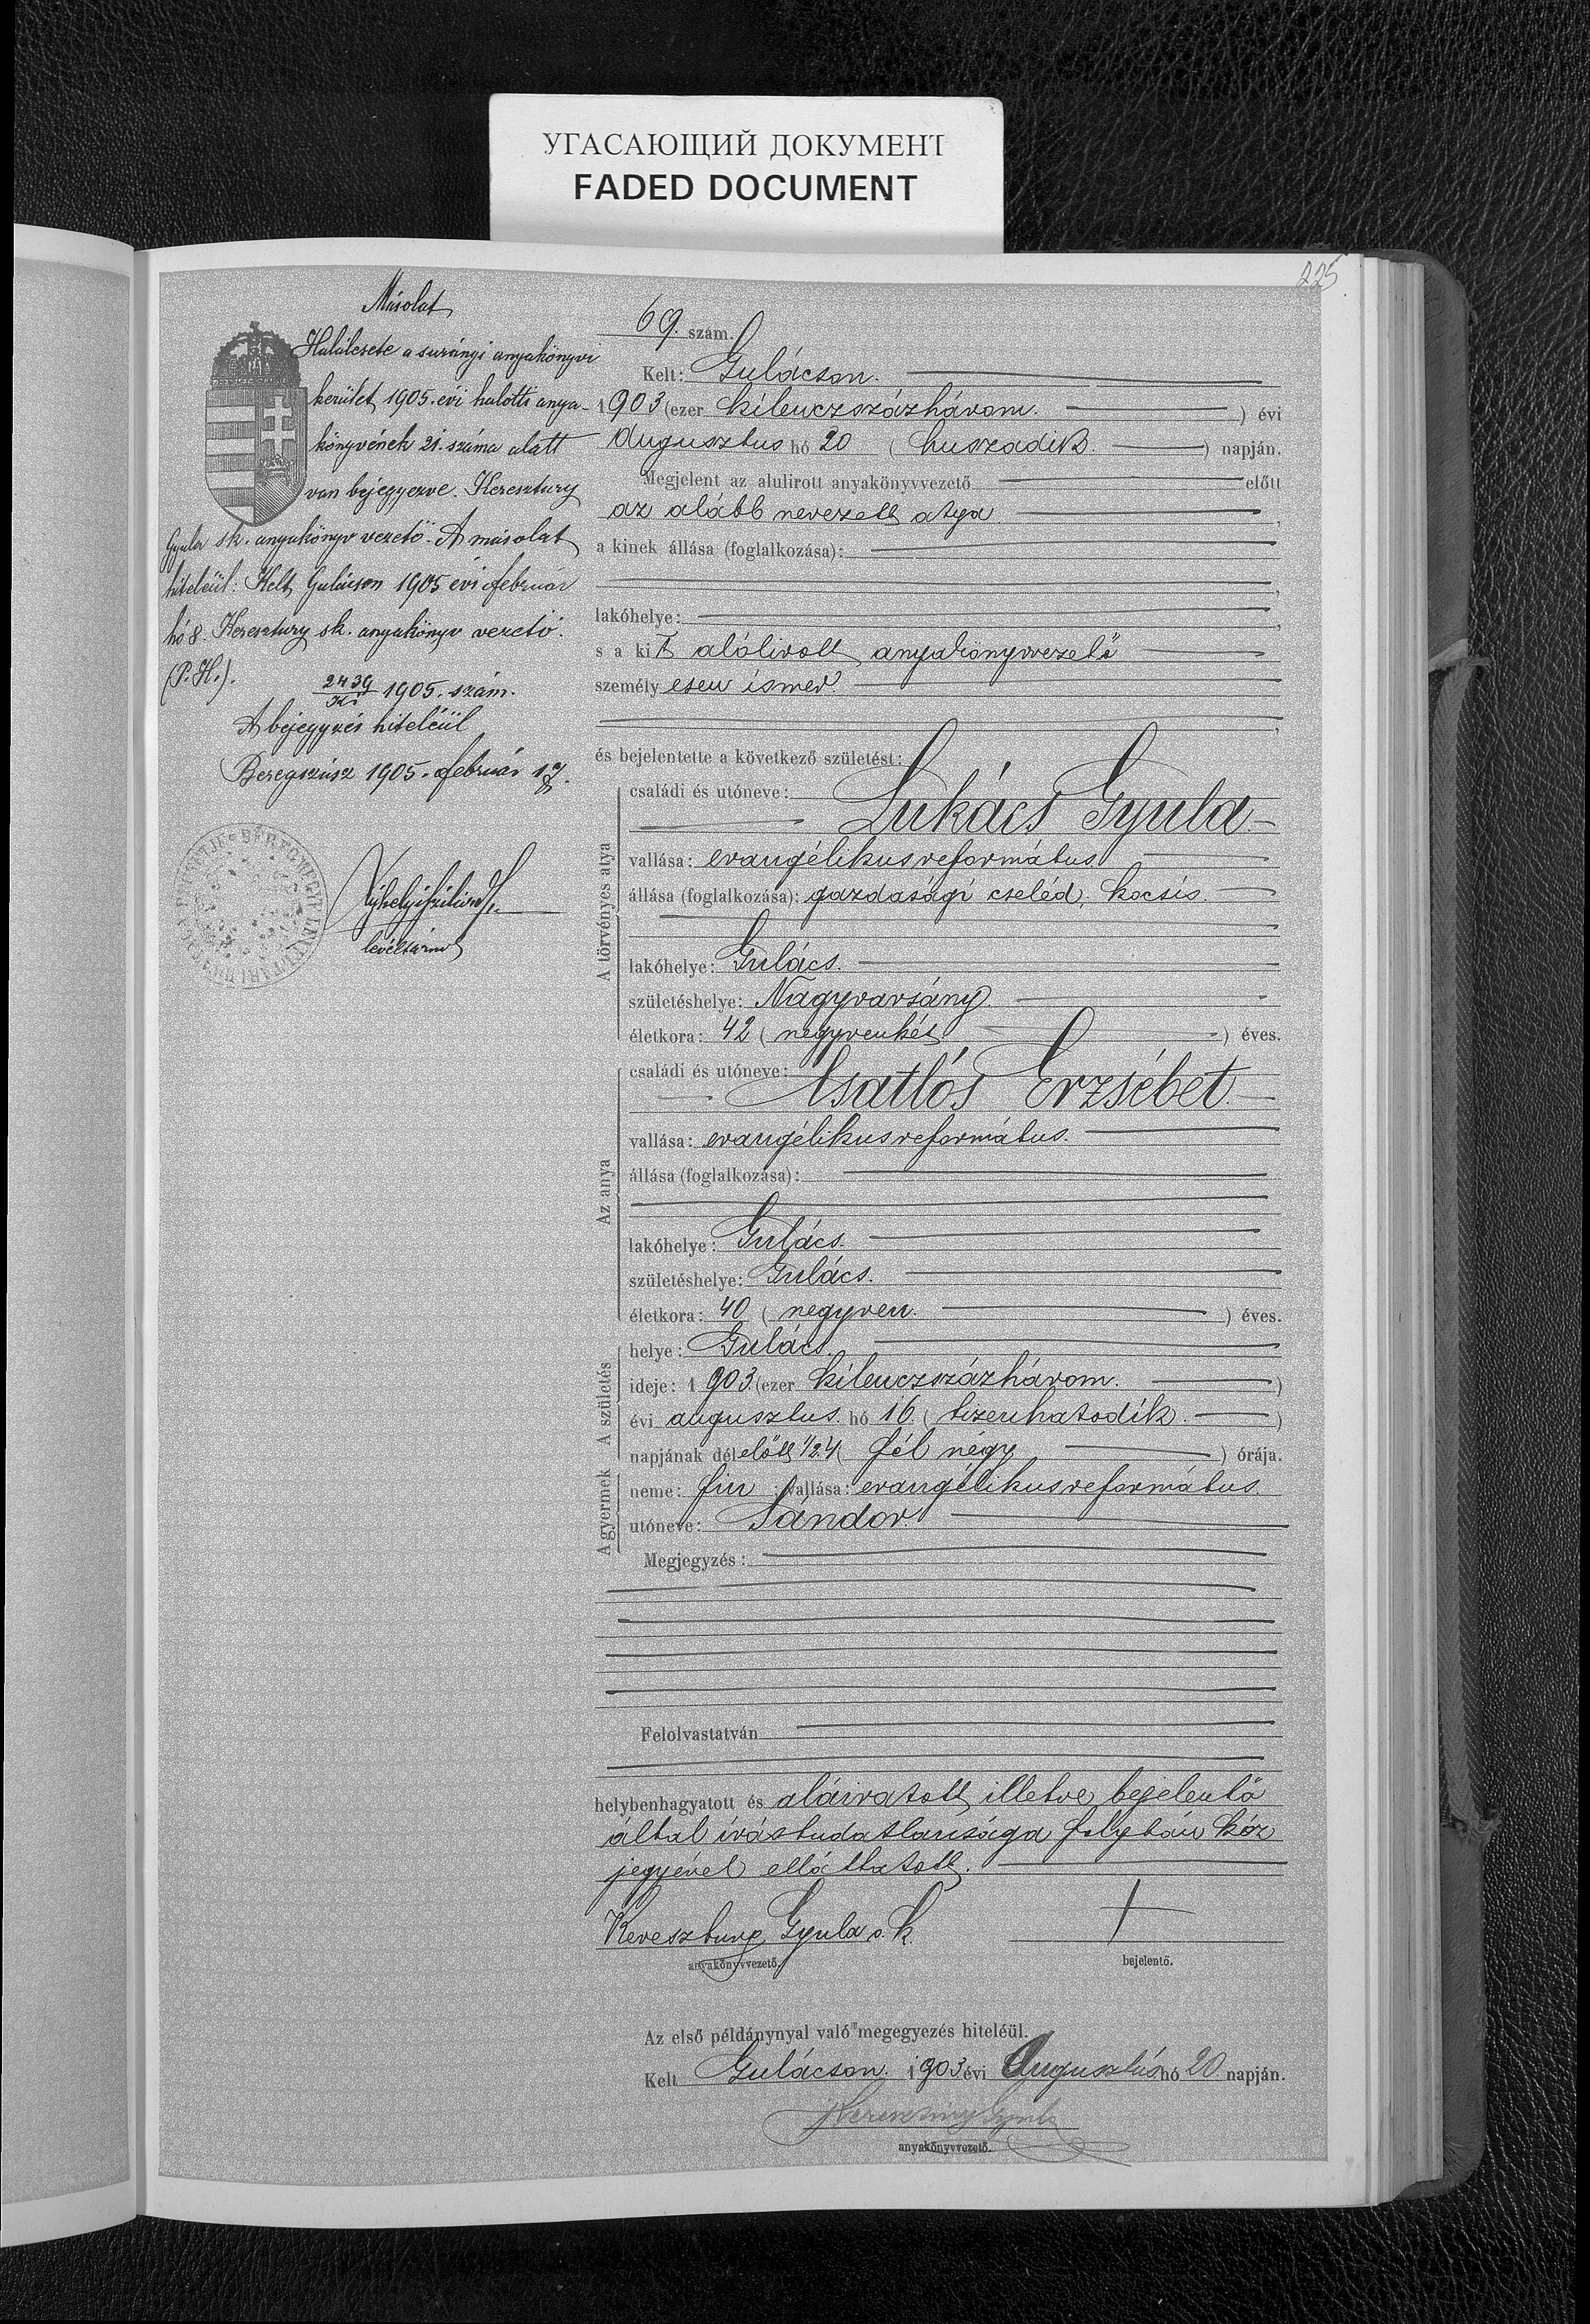 УГАСАЮЩИЙ ДОКУМЕНТ
FADED DOCUMENT
225
Másolat
Halálesete a surányi anyakönyvi
kerület 1905. évi halotti anya-
könyvének 21. száma alatt
van bejegyezve. Keresztury
Gyula sk. anyakönyv vezető. A másolat
hiteléül: Kelt Gulácson 1905 évi február
hó 8. Keresztury sk. anyakönyv vezető.
(P.H.).
2439
1905. szám.
A bejegyzés hiteléül
Beregszász 1905. február 17.
levéltárnok
69. szám.
Kelt: Gulácson.
1903 (ezer kilenczszázhárom. ) évi
Augusztus hó 20 ( huszadik. ) napján.
Megjelent az alulirott anyakönyvvezető előtt
az alább nevezett atya
a kinek állása (foglalkozása):
lakóhelye:
s a kit alólirott anyakönyvvezető
személyesen ismer.
és bejelentette a következő születést:
A törvényes atya
családi és utóneve:
Lukács Gyula
vallása: evangélikusreformátus
állása (foglalkozása): gazdasági cseléd, kocsis.
lakóhelye: Gulács.
születéshelye: Nagyvarsány
életkora: 42 ( negyvenkét ) éves.
Az anya
családi és utóneve:
Csatlós Erzsébet.
vallása: evangélikusreformátus.
állása (foglalkozása):
lakóhelye: Gulács.
születéshelye: Gulács.
életkora: 40 ( negyven. ) éves.
A születés
helye: Gulács.
ideje: 1903. (ezer kilenczszázhárom. )
évi augusztus. hó 16. ( tizenhatodik. )
napjának délelőtt 1/2 4 ( fél négy ) órája.
A gyermek
neme: fiu ; vallása: evangélikusreformátus.
utóneve: Sándor.
Megjegyzés:
Felolvastatván
helybenhagyatott és aláiratott, illetve bejelentő
által írástudatlansága folytán kéz
jegyével elláttatott.
Keresztury Gyula s. k. +
anyakönyvvezető. bejelentő.
Az első példánynyal való megegyezés hiteléül.
Kelt Gulácson. 1903 évi Augusztus hó 20 napján.
Keresztury Gyula
anyakönyvvezető.